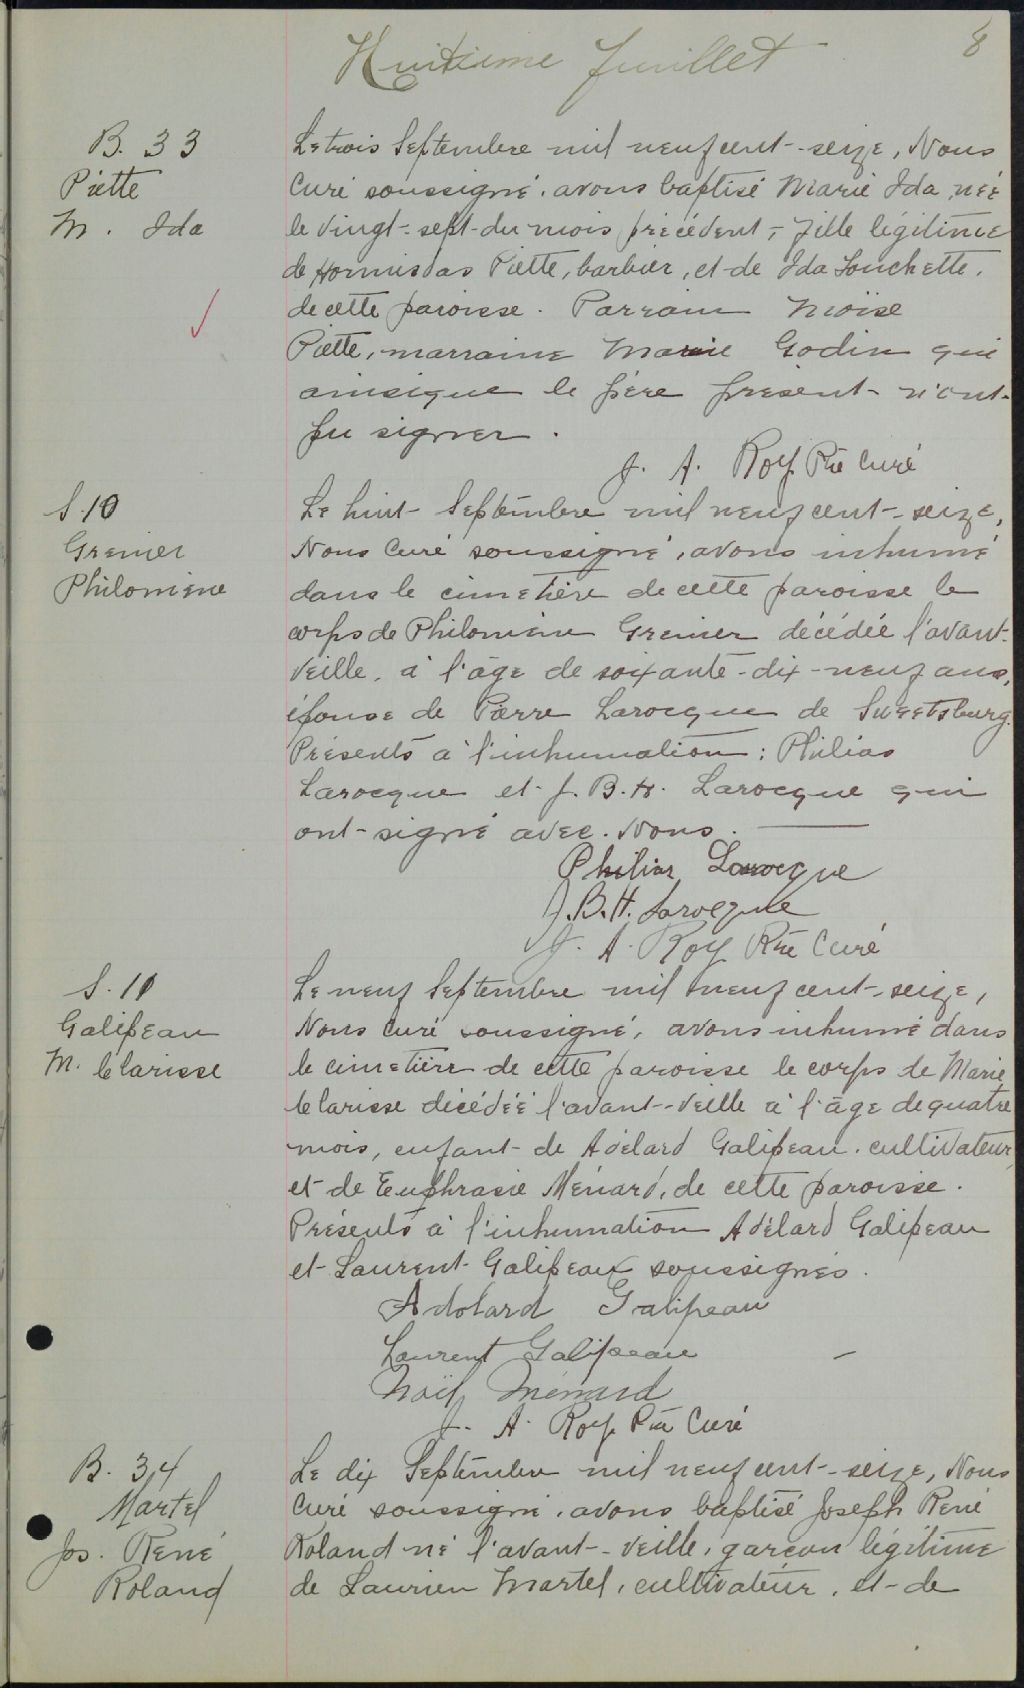 8
Huitième feuillet
B. 33
Piette
M. Ida
Le trois Septembre mil neuf cent-seize, Nous
Curé soussigné, avons baptisé Marie Ida, née
le vingt-sept du mois précédent, fille légitime
de Hormisdas Piette, barbier, et de Ida Touchette,
de cette paroisse. Parrain Moïse
Piette, marraine Marie Godin qui
ainsi que le père présent n'ont
pu signer.
J. A. Roy Ptre Curé
S. 10
Grenier
Philomène
Le huit Septembre mil neuf cent-seize,
Nous Curé soussigné, avons inhumé
dans le cimetière de cette paroisse le
corps de Philomène Grenier décédée l'avant-
veille, à l'âge de soixante-dix-neuf ans,
épouse de Pierre Larocque de Sweetsburg.
Présents à l'inhumation: Philias
Larocque et J. B. H. Larocque qui
ont signé avec Nous.
Philias Larocque
J. B. H. Larocque
J. A. Roy Ptre Curé
S. 11
Galipeau
M. Clarisse
Le neuf Septembre mil neuf cent-seize,
Nous Curé soussigné, avons inhumé dans
le cimetière de cette paroisse le corps de Marie
Clarisse décédée l'avant-veille à l'âge de quatre
mois, enfant de Adélard Galipeau, cultivateur,
et de Euphrasie Ménard, de cette paroisse.
Présents à l'inhumation Adélard Galipeau
et Laurent Galipeau soussignés.
Adolard Galipeau
Laurent Galipeau
Noël Ménard
J. A. Roy Ptre Curé
B. 34
Martel
Jos. René
Roland
Le dix Septembre mil neuf cent-seize, Nous
Curé soussigné, avons baptisé Joseph René
Roland né l'avant-veille, garçon légitime
de Laurien Martel, cultivateur, et de